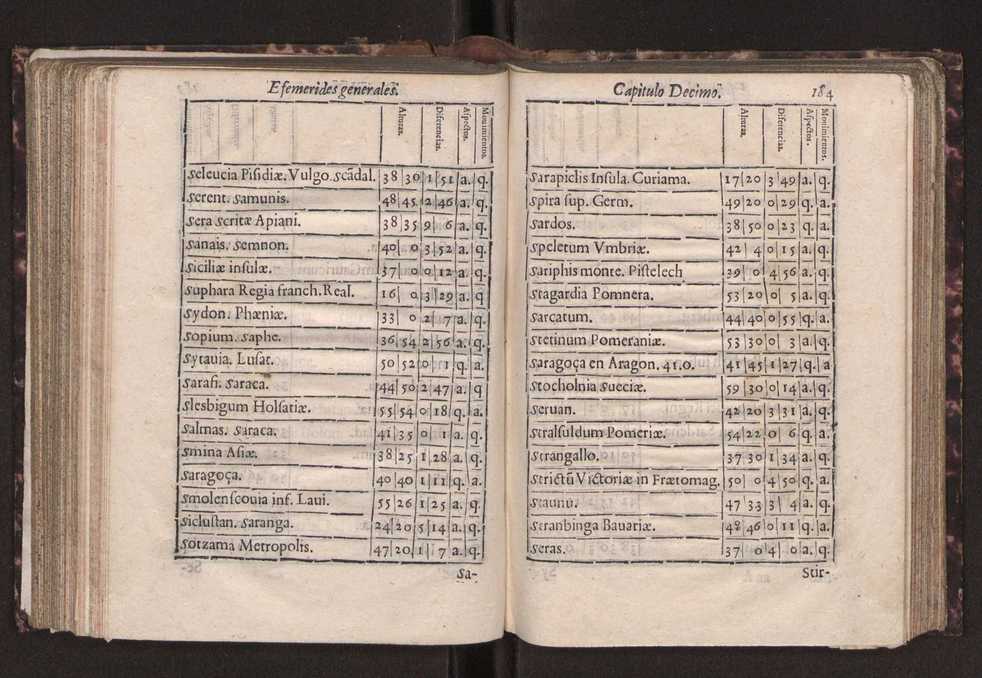 Efemerides generales.
Alturas. Diferencias. Aspectos. Mouimientos.
Seleucia Pisidiæ. Vulgo. scãdal. 38 30 1 51 a. q.
Serent. Samunis. 48 45. 2 46 a. q.
Sera seritæ Apiani. 38 35 9 6 a. q.
Sanais. Semnon. 40 0 3 52 a. q.
Siciliæ insulæ. 37 0 0 12 a. q.
Suphara Regia franch. Real. 16 0 3 29 a. q.
Sydon. Phæniæ. 33 0 2 7 a. q.
Sopium. Saphe. 36 54 2 56 a. q.
Sytauia. Lusat. 50 52 0 1 q. a.
Sarafi. Saraca. 44 50 2 47 a. q
Slesbigum Holsatiæ. 55 54 0 18 q. a.
Salmas. Saraca. 41 35 0 1 a. q.
Smina Asiæ. 38 25 1 28 a. q.
Saragoça. 40 40 1 11 q. a.
Smolenscouia inf. Laui. 55 26 1 25 a. q.
Siclustan. Saranga. 24 20 5 14 a. q.
Sotzama Metropolis. 47 20 1 7 a. q.
Sa-
Capitulo Decimo. 184
Alturas. Diferencias. Aspectos. Mouimientos.
Sarapiclis Insula. Curiama. 17 20 3 49 a. q.
Spira sup. Germ. 49 20 0 29 q. a.
Sardos. 38 50 0 23 q. a.
Speletum Vmbriæ. 42 4 0 15 a. q.
Sariphis monte. Pistelech 39 0 4 56 a. q.
Stagardia Pomnera. 53 20 0 5 a. q.
Sarcatum. 44 40 0 55 q. a.
Stetinum Pomeraniæ. 53 30 0 3 a. q.
Saragoça en Aragon. 41.0. 41 45 1 27 q. a
Stocholnia Sueciæ. 59 30 0 14 a. q.
Seruan. 42 20 3 31 a. q.
Stralsuldum Pomeriæ. 54 22 0 6 q. a.
Strangallo. 37 30 1 34 a. q.
Strictũ Victoriæ in Frætomag. 50 0 4 50 q. a.
Staunu. 47 33 3 4 a. q.
Stranbinga Bauariæ. 48 46 0 11 q. a.
Seras. 37 0 4 0 a. q.
Stir-